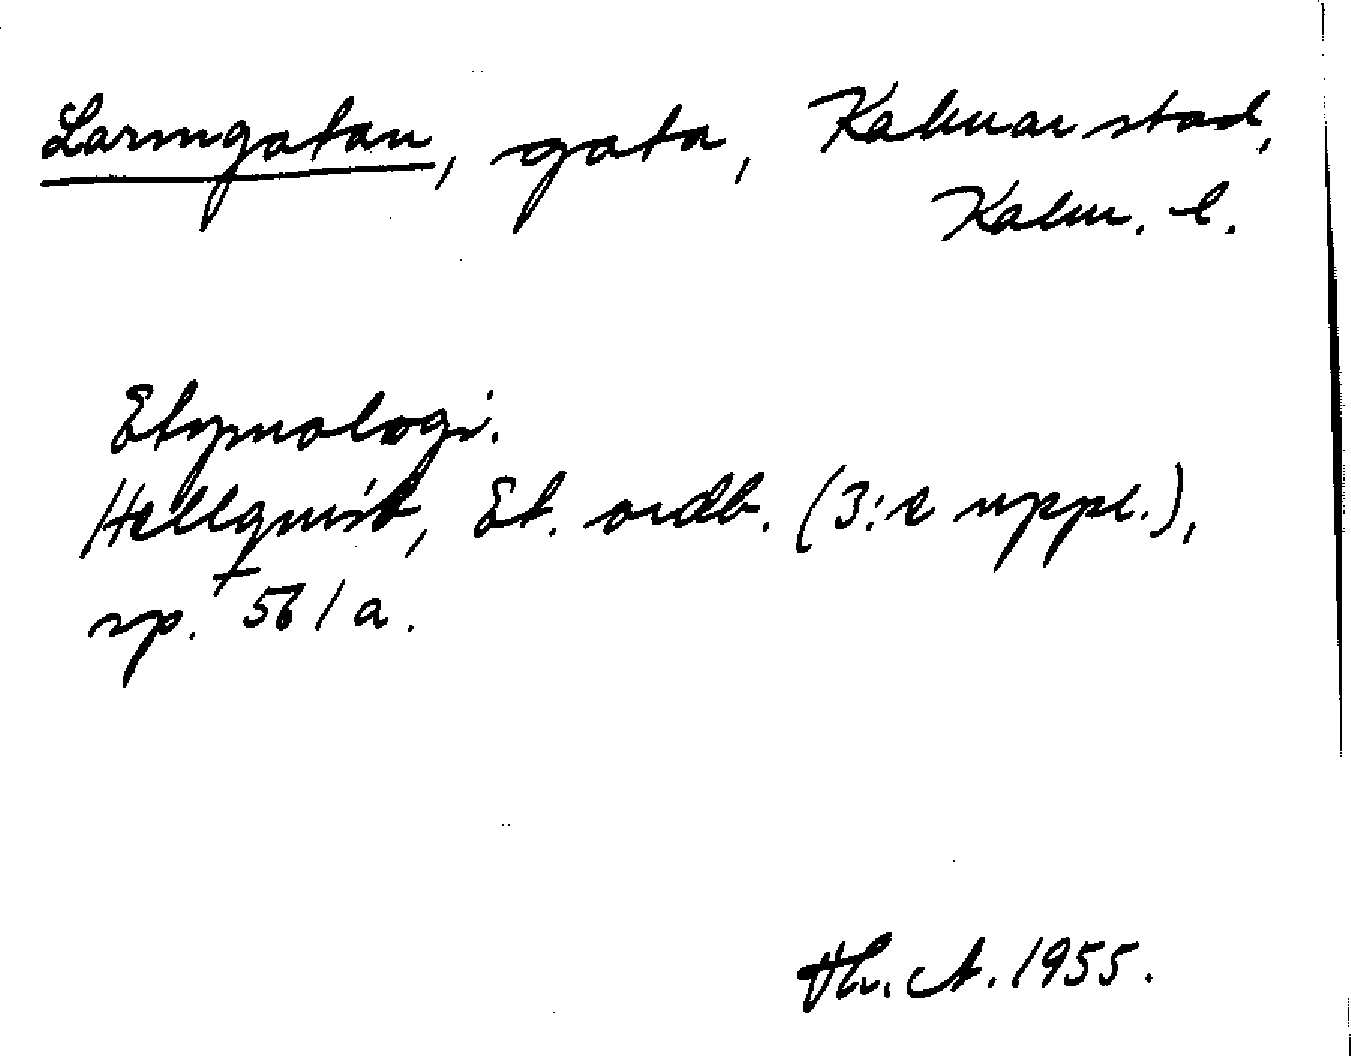 Larmgatan, gata, Kalmar stad,
Kalm. l.
Etymologi.
Hellquist, Et. ordb. (3:e uppl.),
sp. 561 a.
Th. A. 1955.